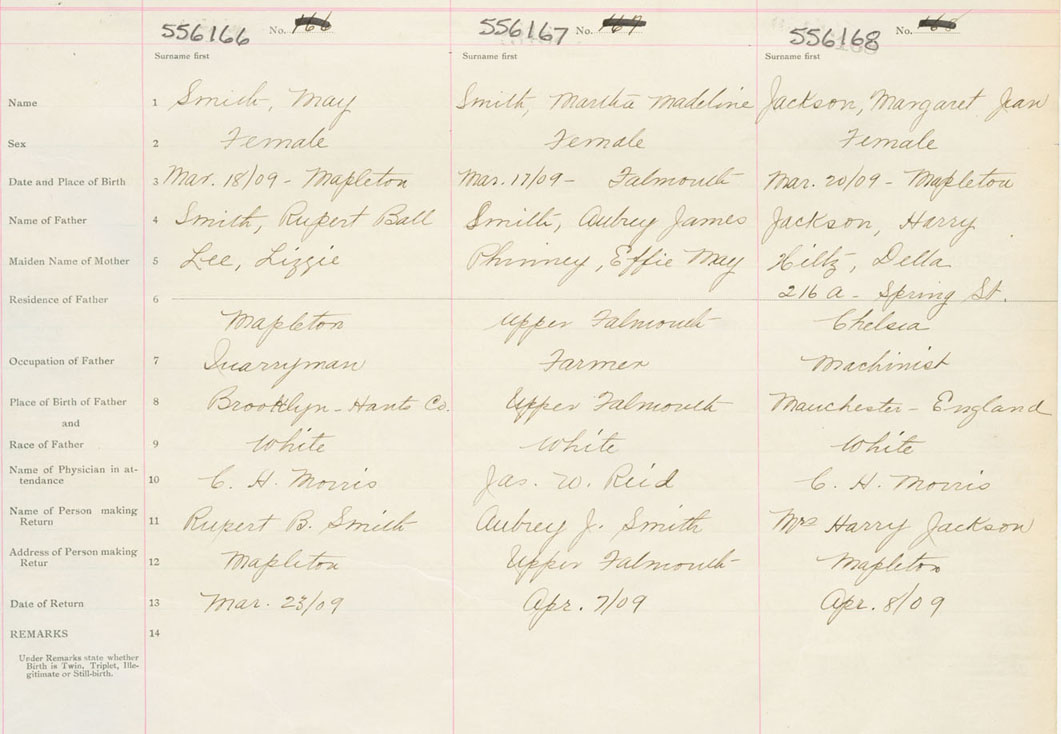 556166 No. 166 556167 No. 167 556168 No. 168
Surname first Surname first Surname first
Name 1 Smith, May Smith, Martha Madeline Jackson, Margaret Jean
Sex 2 Female Female Female
Date and Place of Birth 3 Mar. 18/09 - Mapleton Mar. 17/09 - Falmouth Mar. 20/09 - Mapleton
Name of Father 4 Smith, Rupert Ball Smith, Aubrey James Jackson, Harry
Maiden Name of Mother 5 Lee, Lizzie Phinney, Effie May Hiltz, Della
216 A - Spring St.
Residence of Father 6
Mapleton Upper Falmouth Chelsea
Occupation of Father 7 Quarryman Farmer Machinist
Place of Birth of Father 8 Brooklyn - Hants Co. Upper Falmouth Manchester - England
and
Race of Father 9 White White White
Name of Physician in at-
tendance 10 C. H. Morris Jas. W. Reid C. H. Morris
Name of Person making
Return 11 Rupert B. Smith Aubrey J. Smith Mrs Harry Jackson
Address of Person making
Retur 12 Mapleton Upper Falmouth Mapleton
Date of Return 13 Mar. 23/09 Apr. 7/09 Apr. 8/09
REMARKS 14
Under Remarks state whether
Birth is Twin, Triplet, Ille-
gitimate or Still-birth.